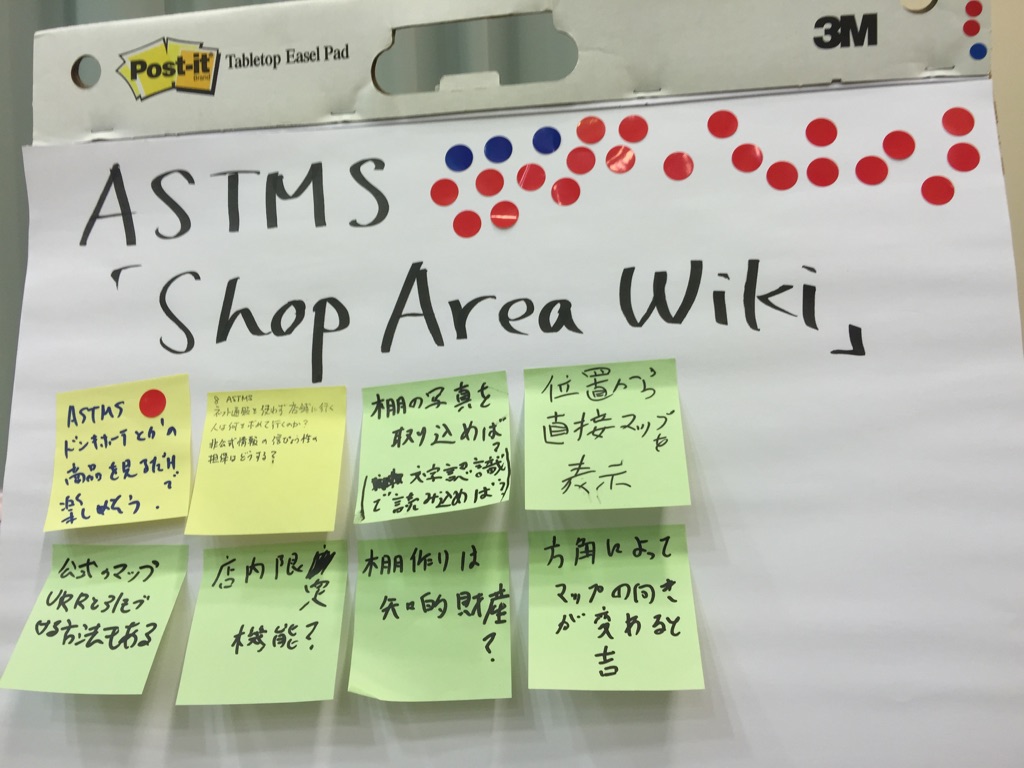 Post-it
Brand
Tabletop Easel Pad
3M
ASTMS
「Shop Area Wiki」
ASTMS
ドンキホーテとかの
商品を見るだけで
楽しめそう.
ASTMS
ネット通販を使わず店舗に行く
人は何を求めて行くのか?
非公式情報の信ぴょう性の
担保はどうする?
棚の写真を
取り込めば?
(文字認識
で読み込めば?)
位置から
直接マップを
表示
公式のマップ
方法もある
店内限定
機能?
棚作りは
知的財産
?
方角によって
マップの向き
が変わると
吉